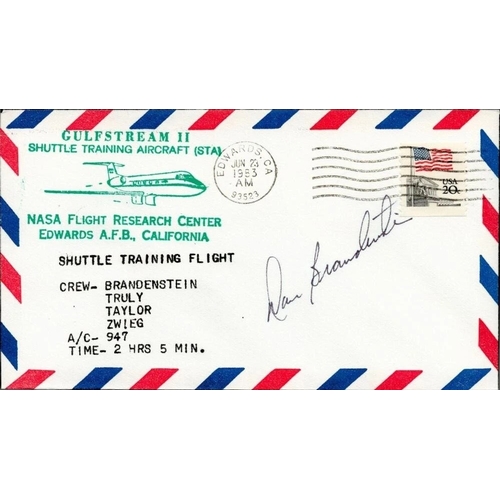 GULFSTREAM II
SHUTTLE TRAINING AIRCRAFT (STA)
NASA FLIGHT RESEARCH CENTER
EDWARDS A.F.B., CALIFORNIA
EDWARDS, CA
JUN 23
1983
AM
93523
USA
20c
SHUTTLE TRAINING FLIGHT
CREW- BRANDENSTEIN
TRULY
TAYLOR
ZWIEG
A/C- 947
TIME- 2 HRS 5 MIN.
Dan Brandenstein